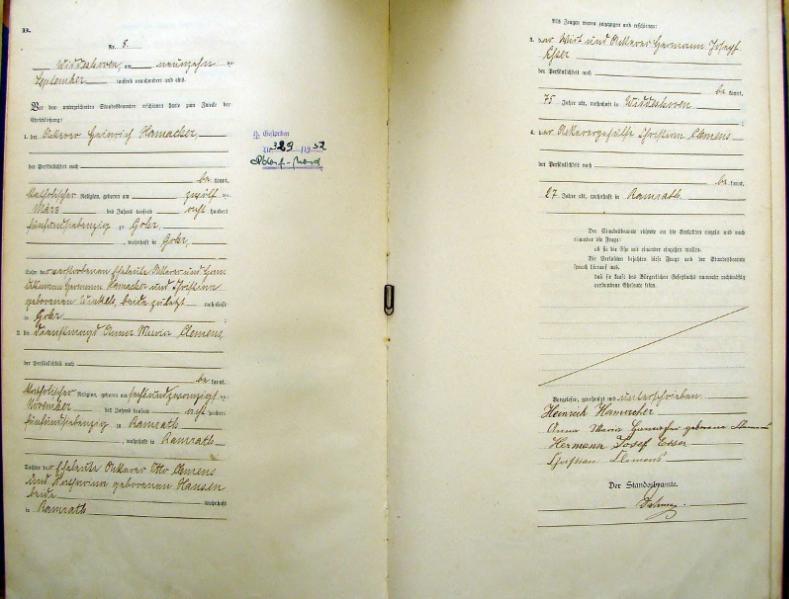 Nr. 8.
Widdeshoven, am neunzehn ten
September tausend neunhundert und
Vor dem unterzeichneten Standesbeamten erschienen heute zum Zwecke der
Eheschließung:
1. der Ackerer Heinrich Hamacher,
der Persönlichkeit nach
be kannt,
katholischer Religion, geboren am zwölf ten
März des Jahres tausend acht hundert
fünfundsiebenzig zu Gohr,
, wohnhaft in Gohr,
Sohn der verstorbenen Eheleute Ackerer und
Hermann Hamacher und Christina
geborenen Winkels, beide zuletzt wohnhaft
in Gohr
2. die Dienstmagd Anna Maria Clemens,
der Persönlichkeit nach
be kannt,
katholischer Religion, geboren am sechsundzwanzigsten
November des Jahres tausend acht hundert
fünfundsiebenzig zu Ramrath
, wohnhaft in Ramrath
Tochter der Eheleute Ackerer Otto Clemens
und Katharina geborenen Hansen
beide wohnhaft
in Ramrath
Gestorben
329
52
Nord
Als Zeugen waren zugezogen und erschienen:
3. der Wirt und Ackerer Hermann Joseph
Esser
der Persönlichkeit nach
be kannt,
75 Jahre alt, wohnhaft in Widdeshoven
4. der Ackerergehülfe Christian Clemens
der Persönlichkeit nach
be kannt,
27 Jahre alt, wohnhaft in Ramrath.
Der Standesbeamte richtete an die Verlobten einzeln und nach
einander die Frage:
ob sie die Ehe mit einander eingehen wollen.
Die Verlobten bejahten diese Frage und der Standesbeamte
sprach hierauf aus,
daß sie kraft des Bürgerlichen Gesetzbuchs nunmehr rechtmäßig
verbundene Eheleute seien.
Vorgelesen, genehmigt und unterschrieben
Heinrich Hamacher
Anna Maria Hamacher geborene Clemens
Hermann Josef Esser
Christian Clemens
Der Standesbeamte.